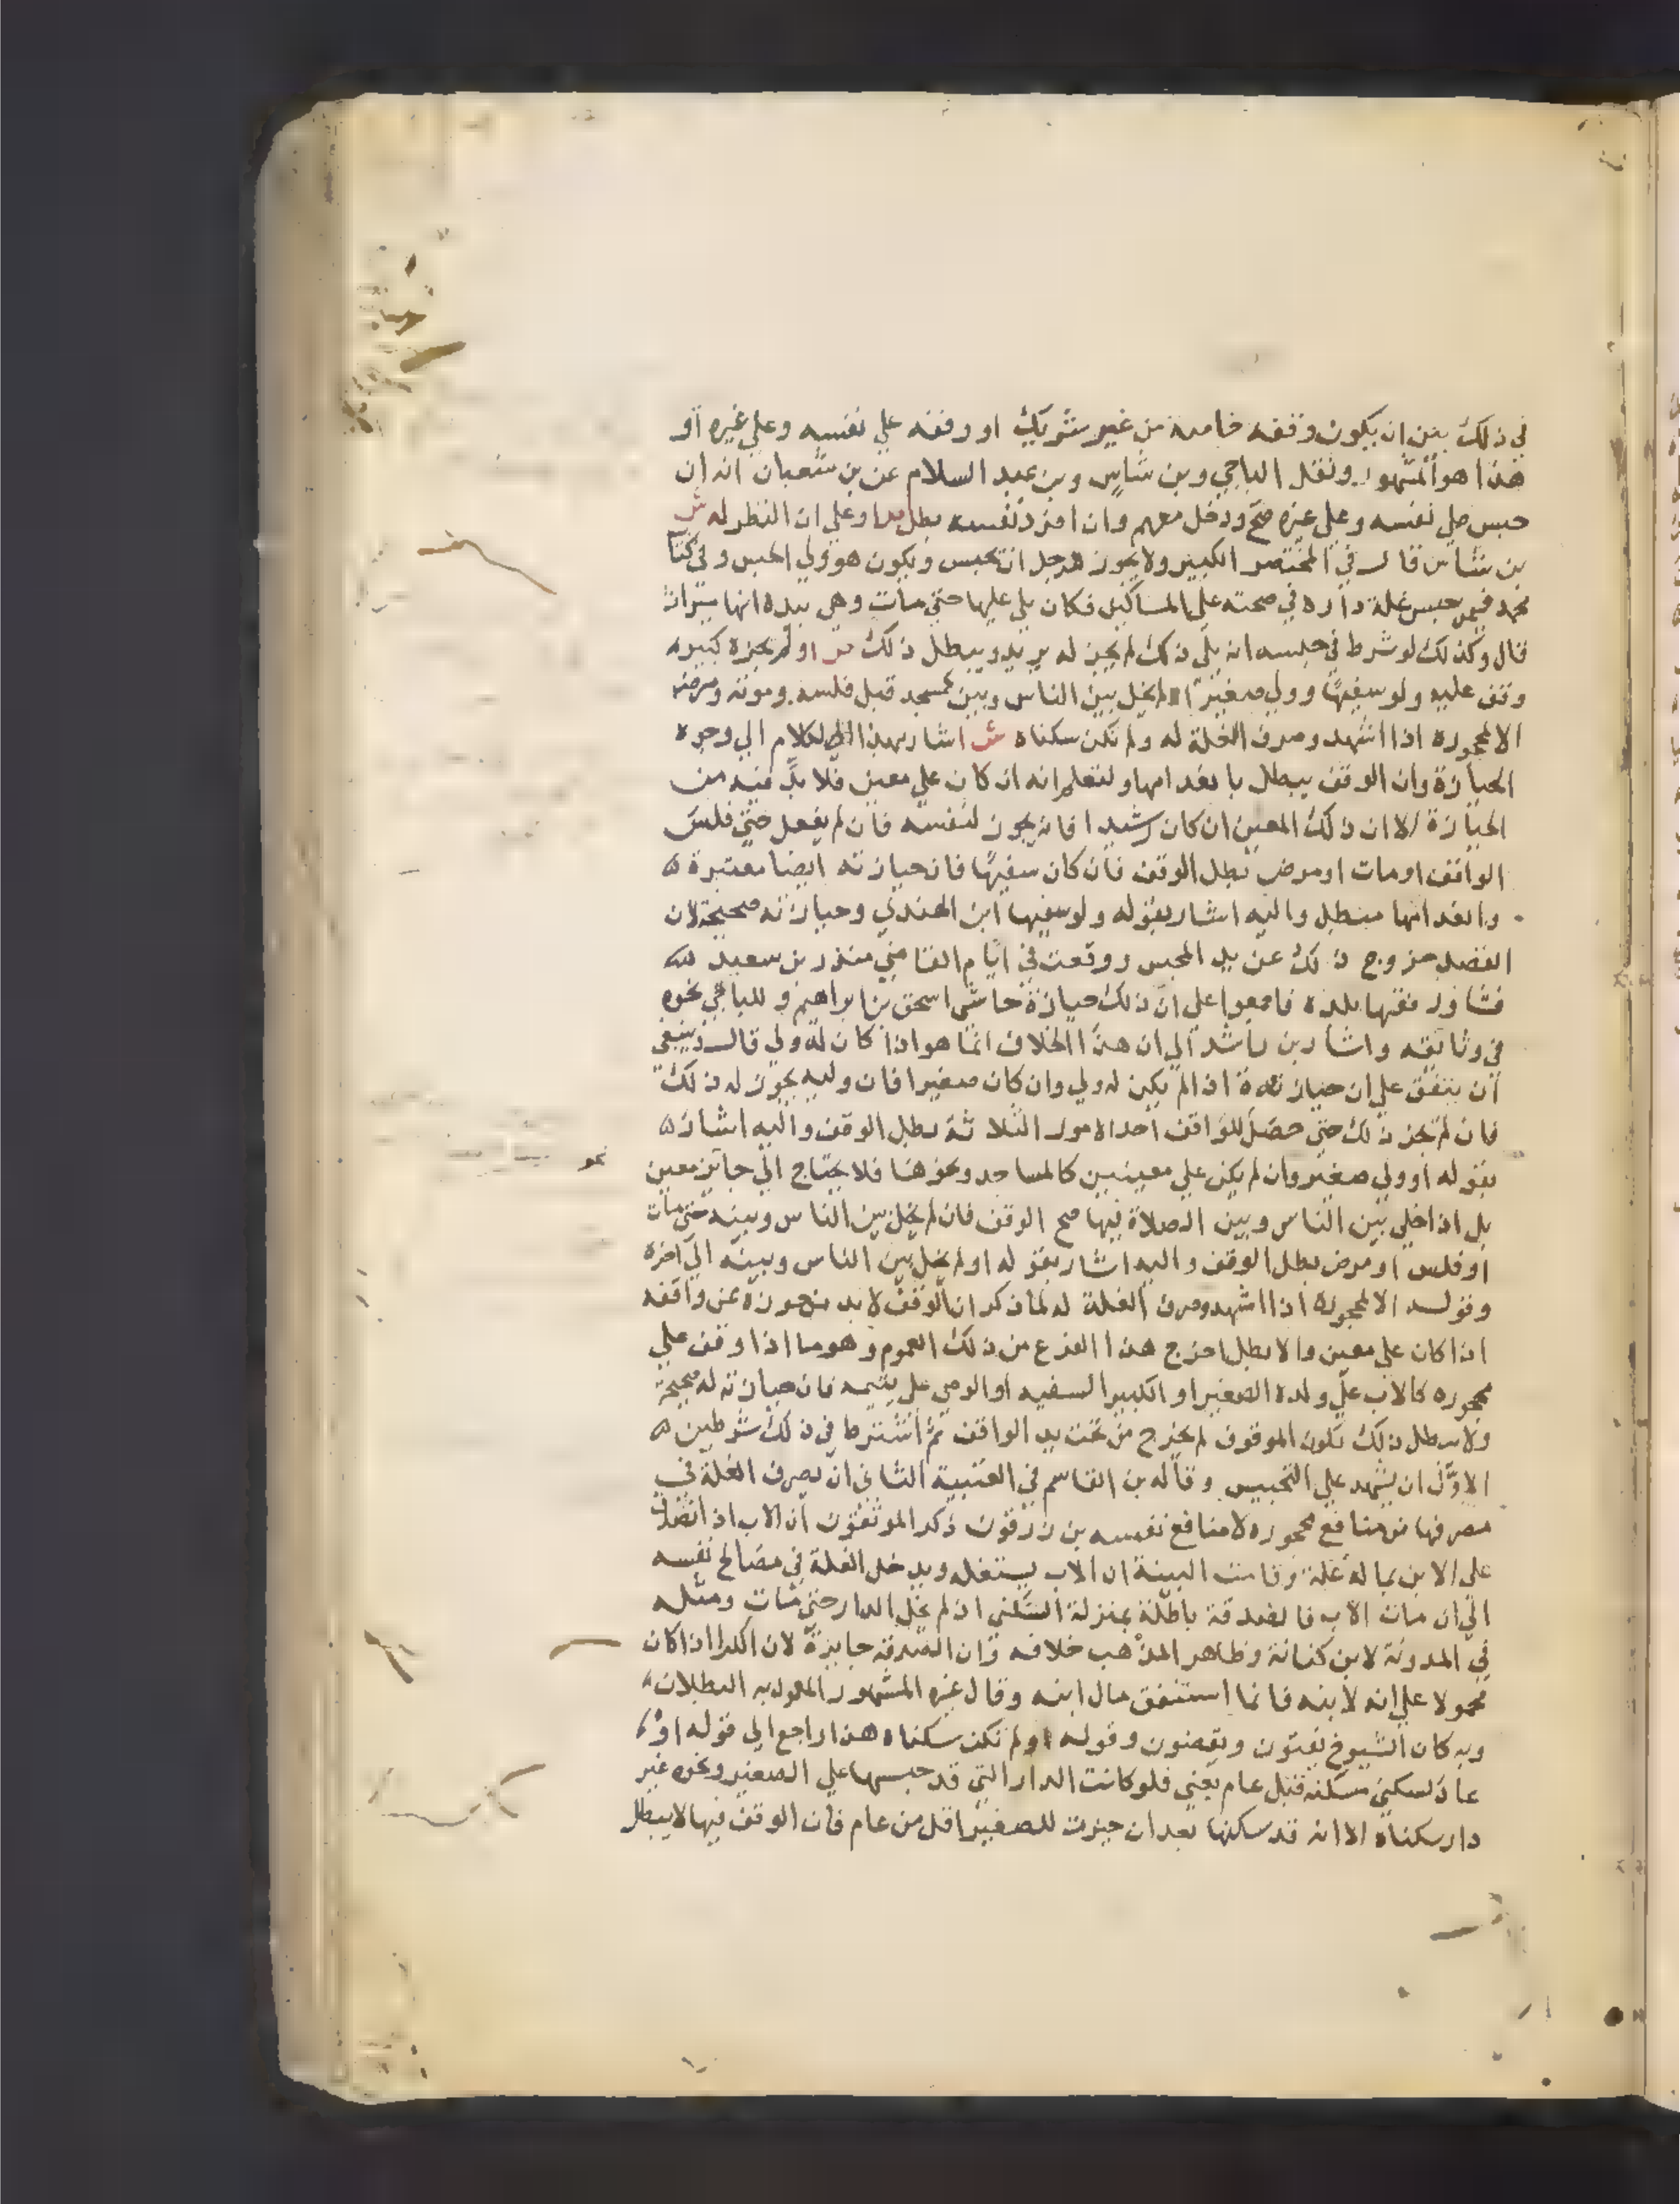 في ذلك بين ان يكون وقفه خاصة من غير شريك او وقفه علي نفسه وعلي غيره او
هذا هو المشهور ونقل الباجي وبن شاس وبن عبد السلام عن بن شعبان انه ان
حبس علي نفسه وعلي غيره صح ودخل معهم وان افرد نفسه بطل ص او علي ان النظر له ش
بن شاس قال في المختصر الكبير ولا يجوز للرجل ان يحبس ويكون هو ولي الحبس وفي كتاب
محمد فيمن حبس غلة داره في صحته علي المساكين فكان يلي عليها حتي مات وهي بيده انها ميراث
قال وكذلك لو شرط في حبسه انه يلي ذلك لم يجز له يريد ويبطل ذلك ص او لم يحزه كبير
وقف عليه ولو سفيها وولي صغير او لم يخل بين الناس وبين كمسجد قبل فلسه وموته ومرضه
الا لمحجوره اذا اشهد وصرف الغلة له ولم تكن سكناه ش اشار بهذا الكلام الي وجوه
الحيازة وان الوقف يبطل بانعدامها ولتعلم انه ان كان علي معين فلا بد فيه من
الحيازة الا ان ذلك المعين ان كان رشيدا فانه يحوز لنفسه فان لم يفعل حتي فلس
الواقف او مات او مرض بطل الوقف فان كان سفيها فان حيازته ايضا معتبرة ه
وانعدامها مبطل واليه اشار بقوله ولو سفيها ابن الهندي وحيازته صحيحة لان
القصد خروج ذلك عن يد المحبس ووقعت في ايام القاضي منذر بن سعيد
فشاور فقها بلده فاجمعوا علي ان ذلك حيازة حاشي اسحق بن ابراهيم وللباجي نحوه
في وثائقه واشار بن راشد الي ان هذا الخلاف انما هو اذا كان له ولي قال وينبغي
ان يتفق علي ان حيازته اذا لم يكن له ولي وان كان صغيرا فان وليه يحوز له ذلك
فان لم يحز ذلك حتي حصل للواقف احد الامور الثلاثة بطل الوقف واليه اشار ه
بقوله او ولي صغير وان لم يكن علي معينين كالمساجد ونحوها فلا يحتاج الي حايز معين
نحو
بل اذا خلي بين الناس وبين الصلاة فيها صح الوقف فان لم يخل بين الناس وبينه حتي مات
او فلس او مرض بطل الوقف واليه اشار بقوله او لم يخل بين الناس وبينه الي اخره
وقوله الا لمحجوره اذا اشهد وصرف الغلة له لما ذكر ان الوقف لا بد من حوزه عن واقفه
اذا كان علي معين والا بطل اخرج هذا الفرع من ذلك العموم وهو ما اذا وقف علي
محجوره كالاب علي ولده الصغير او الكبير السفيه او الوصي علي يتيمه فان حيازته له صحيحة
ولا يبطل ذلك بكون الموقوف لم يخرج من تحت يد الواقف ثم اشترط في ذلك شرطين ه
الاول ان يشهد علي التحبيس وقاله بن القاسم في العتبية الثاني ان يصرف الغلة في
مصرفها من منافع محجوره لا منافع نفسه بن زرقون ذكر الموثقون ان الاب اذا تصدق
علي الابن بما له غلة وقامت البينة ان الاب يستغله ويدخل الغلة في مصالح نفسه
الي ان مات الاب فالصدقة باطلة بمنزلة السكني اذ لم يخل الدار حتي مات ومثله
في المدونة لابن كنانة وظاهر المذهب خلافه وان الصدقة جايزة لان الكرا اذا كان
محمولا علي انه لابنه فانما استنفق مال ابنه وقال غيره المشهور المعول به البطلان
وبه كان الشيوخ يفتون ويقضون وقوله ولم تكن سكناه هذا راجع الي قوله او
عاد لسكني مسكنه قبل عام يعني فلو كانت الدار التي قد حبسها علي الصغير ونحوه غير
دار سكناه الا انه قد سكنها بعد ان حيزت للصغير اقل من عام فان الوقف فيها لا يبطل